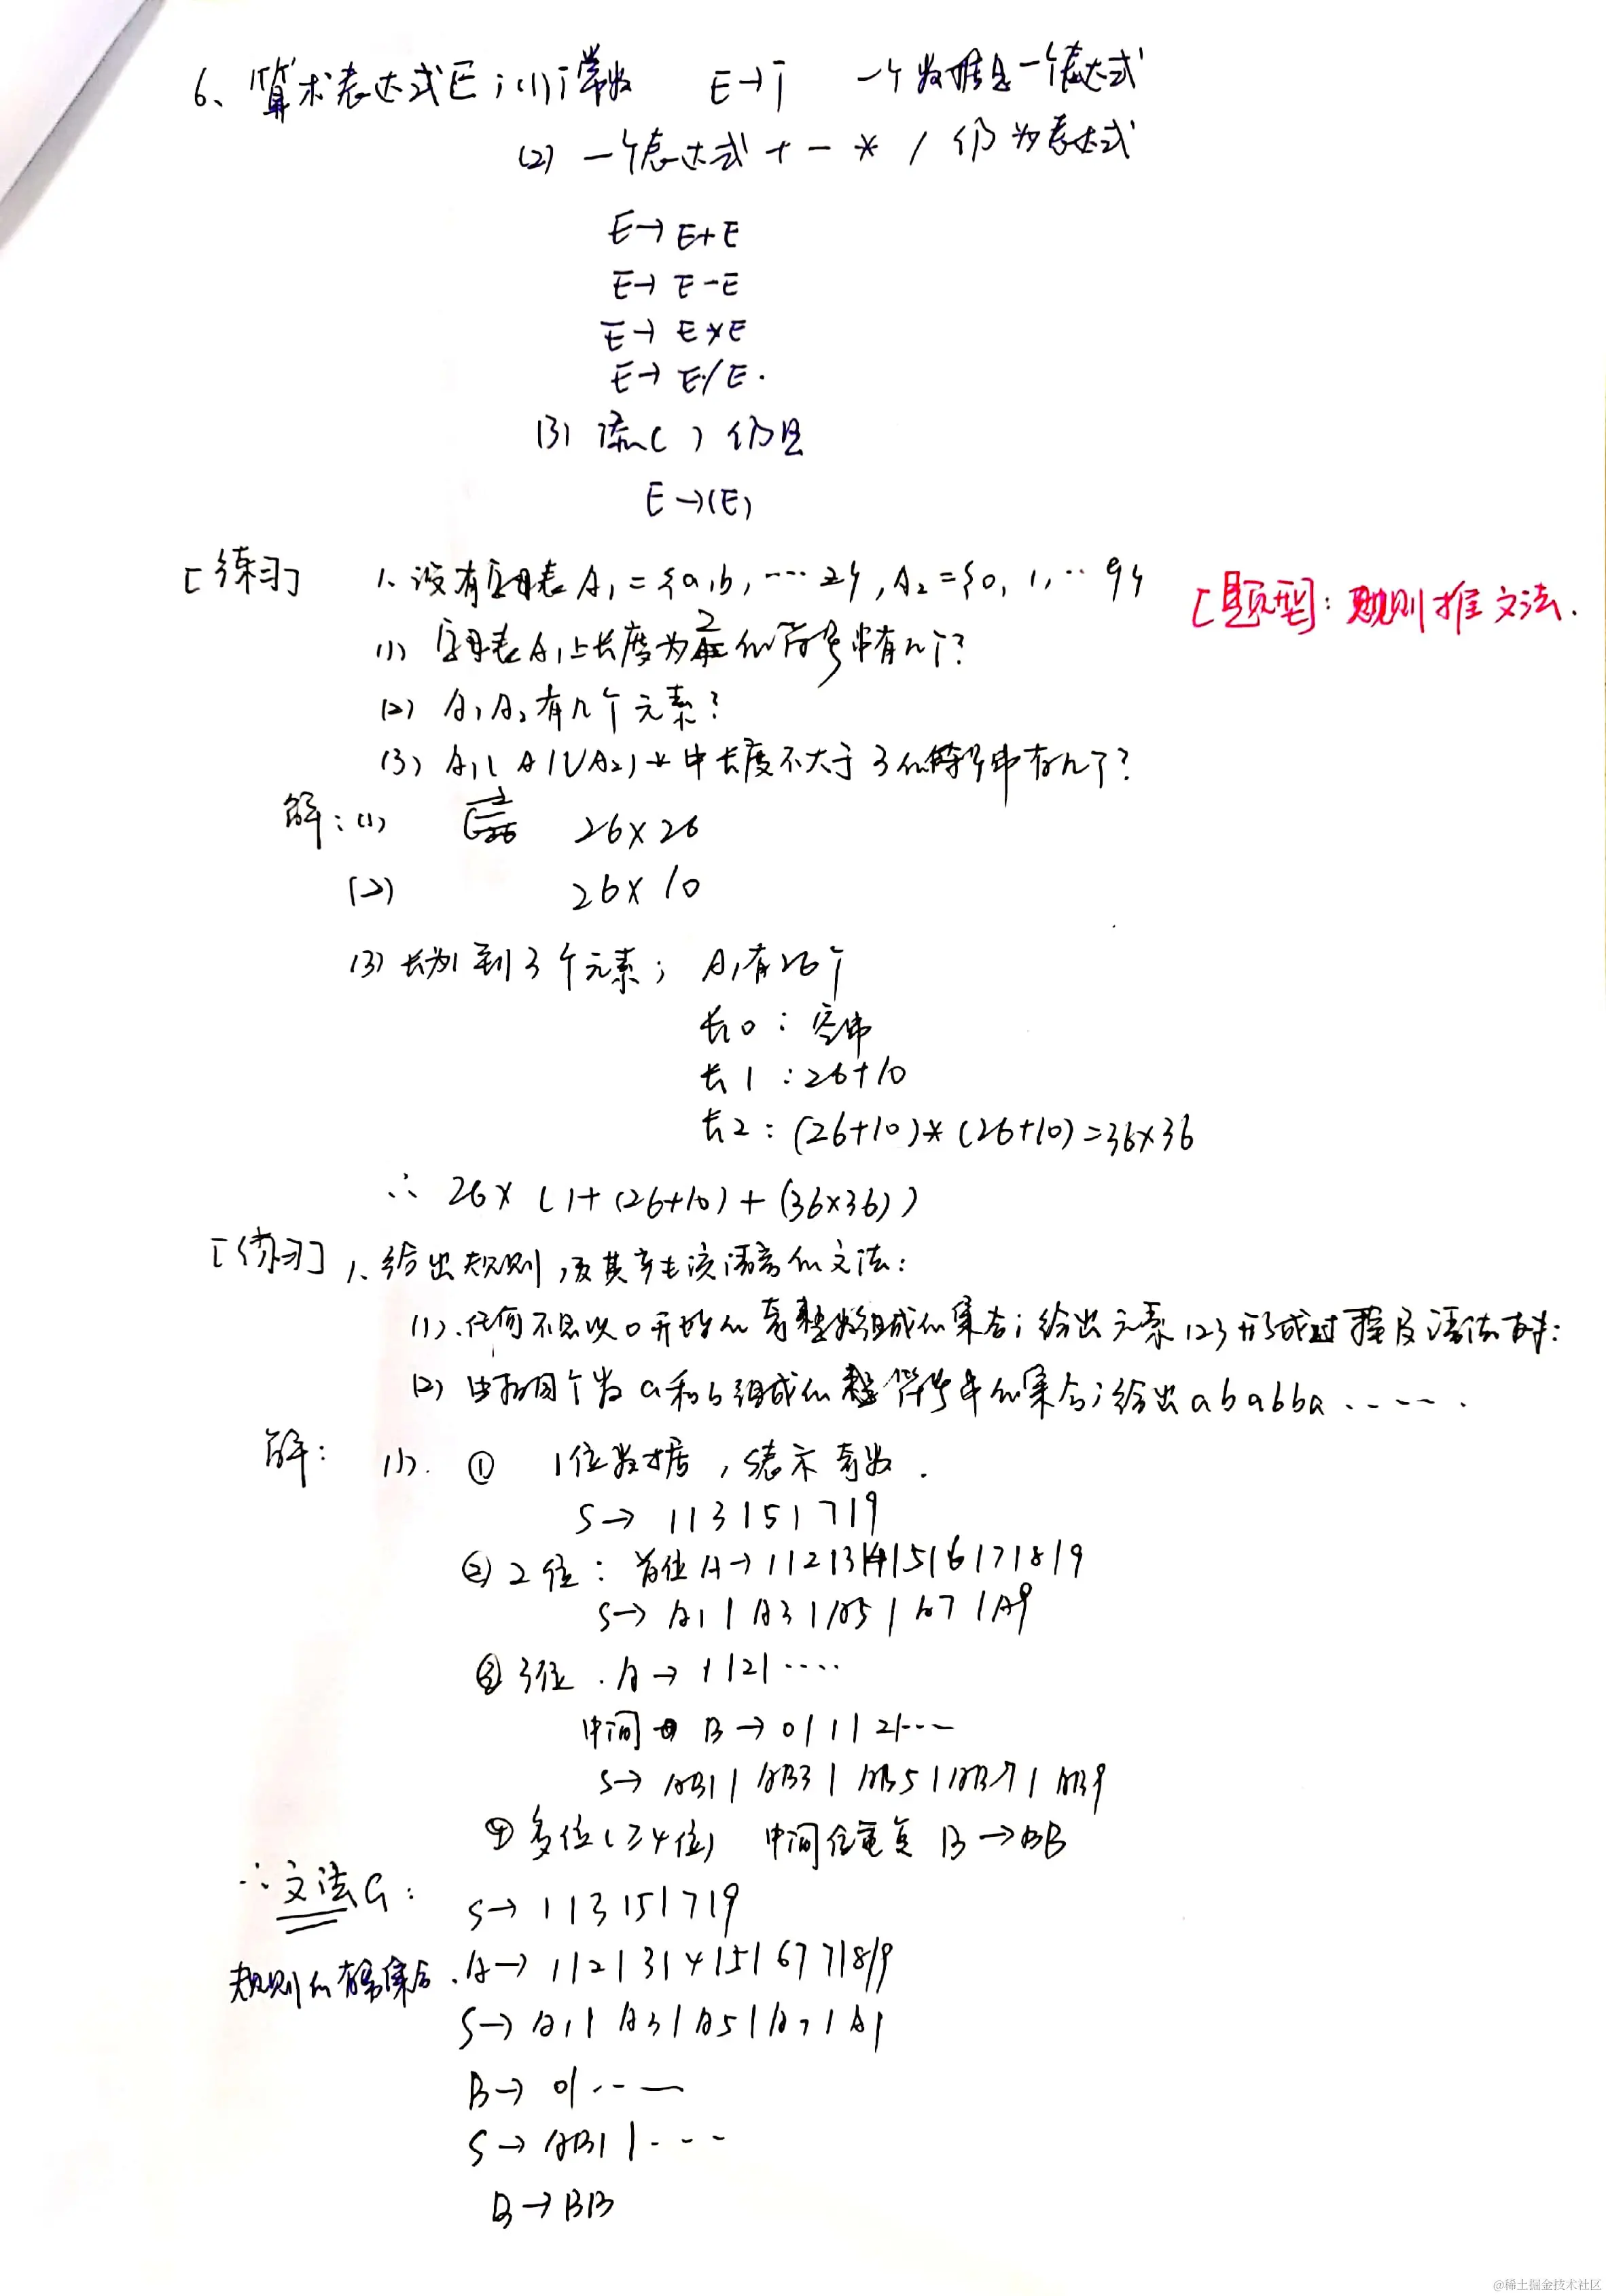 6、算术表达式E；(1) i 常数 E→i 一个数据是一个表达式
(2) 一个表达式 + - * / 仍为表达式
E→E+E
E→E-E
E→E*E
E→E/E.
(3) 添( ) 仍是
E→(E)
[练习] 1、设有字母表A₁={a,b,…z},A₂={0,1,…9}
[题型]：规则推文法.
(1) 字母表A₁上长度为2的符号串有几个？
(2) A₁A₂有几个元素？
(3) A₁(A1∪A2)*中长度不大于3的符号串有几个？
解：(1) 26×26
(2) 26×10
(3) 长为1到3个元素； A₁有26个
长0：空串
长1：26+10
长2：(26+10)*(26+10)=36×36
∴ 26×(1+(26+10)+(36×36))
[练习] 1、给出规则,及其产生该语言的文法：
(1).任何不是以0开始的奇整数组成的集合；给出元素123形成过程及语法树：
(2) 由相同个数a和b组成的符号串的集合；给出ababba.....
解： (1). ① 1位数据，S表示奇数.
S→ 1|3|5|7|9
② 2位：首位A→1|2|3|4|5|6|7|8|9
S→A1|A3|A5|A7|A9
③ 3位.A→1|2|....
中间 B→0|1|2|...
S→AB1|AB3|AB5|AB7|AB9
④ 多位(≥4位) 中间位重复 B→BB
∴文法G：
S→1|3|5|7|9
规则的有穷集合. A→1|2|3|4|5|6|7|8|9
S→A1|A3|A5|A7|A9
B→0|...
S→AB1|...
B→BB
@稀土掘金技术社区